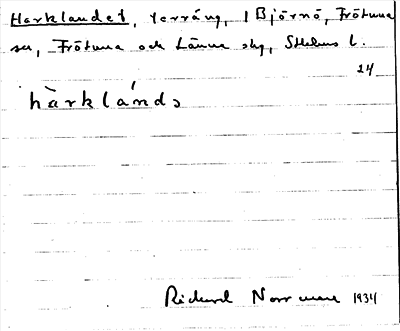 Harklandet, terräng, 1 Björnö, Frötuna
sn, Frötuna och Länna skg, Sthlms l.
24
hàrklánds
Richard Norrman 1934